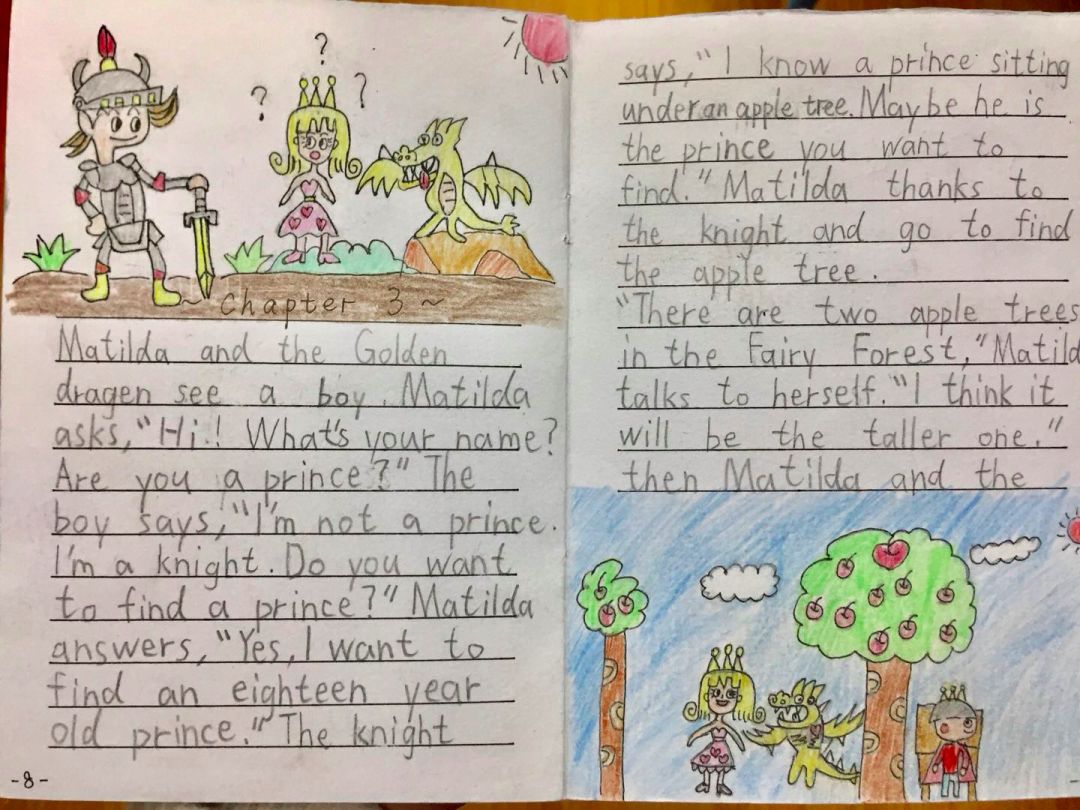 ?
?
?
~ Chapter 3 ~
Matilda and the Golden
dragen see a boy. Matilda
asks, "Hi! What's your name?
Are you a prince?" The
boy says, "I'm not a prince.
I'm a knight. Do you want
to find a prince?" Matilda
answers, "Yes, I want to
find an eighteen year
old prince." The knight
-8-
says, "I know a prince sitting
under an apple tree. Maybe he is
the prince you want to
find." Matilda thanks to
the knight and go to find
the apple tree.
"There are two apple trees
in the Fairy Forest," Matild
talks to herself. "I think it
will be the taller one."
then Matilda and the